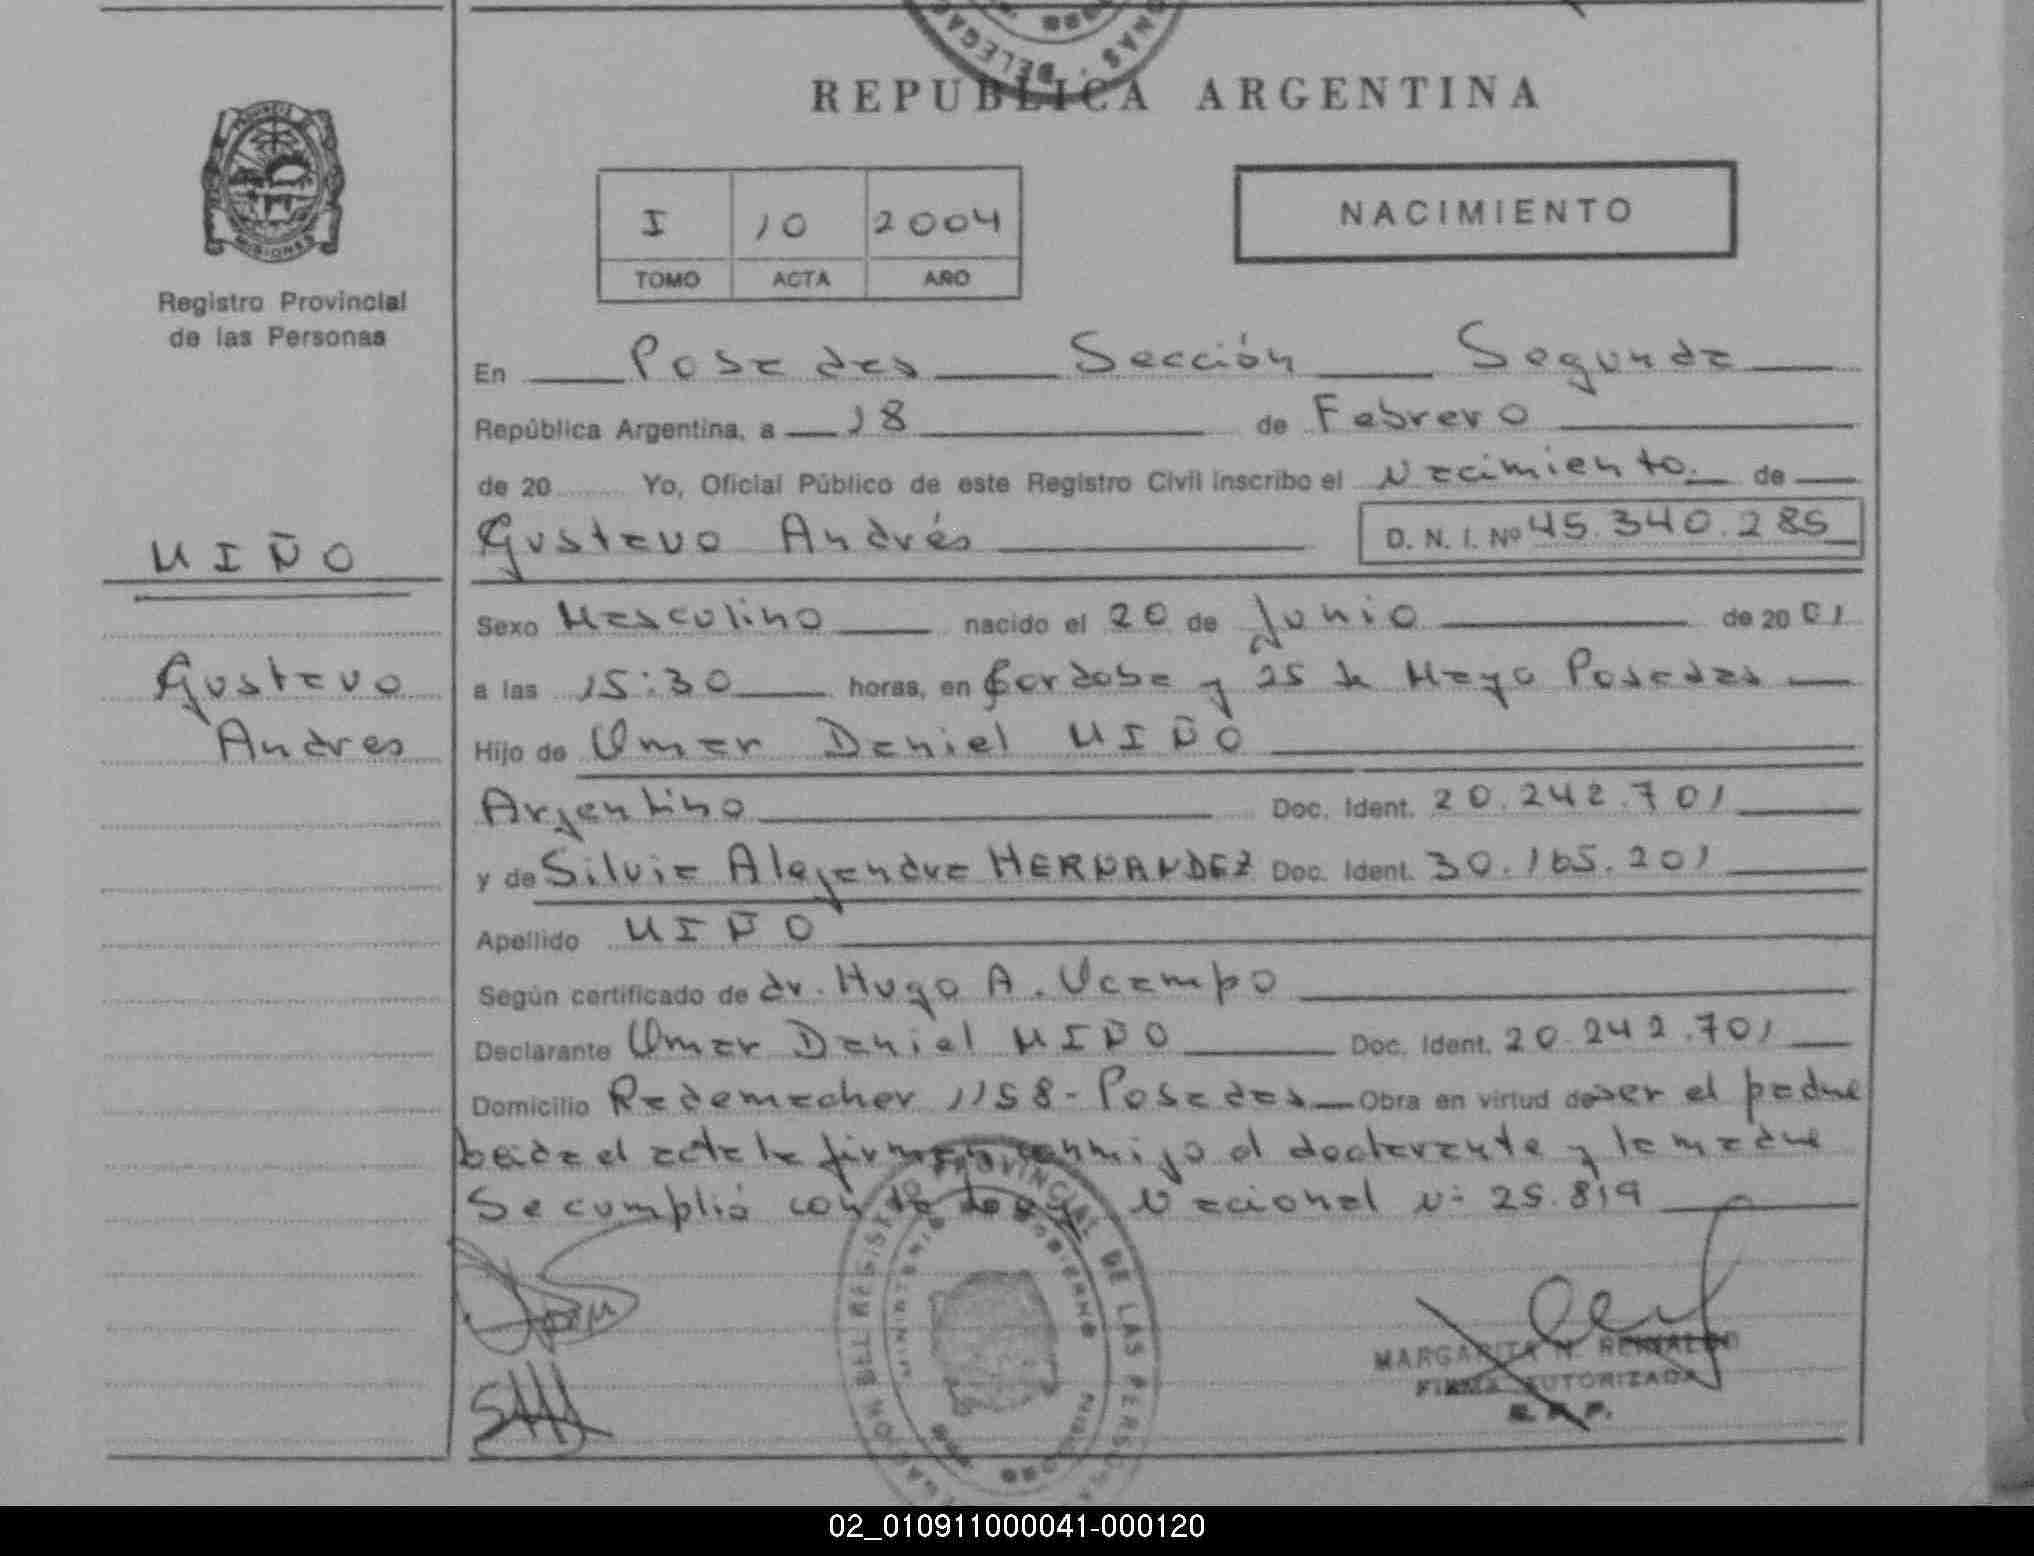 DELEGAC
NAS
REPUBLICA ARGENTINA
PROVINCIA
MISIONES
I 10 2004
TOMO ACTA AÑO
NACIMIENTO
Registro Provincial
de las Personas
En Posadas Sección Segunda
República Argentina, a 18 de Febrero
de 20 Yo, Oficial Público de este Registro Civil inscribo el Nacimiento. de
MIÑO
Gustavo Andrés D. N. I. Nº 45.340.285
Sexo Masculino nacido el 20 de Junio de 2001
Gustavo
a las 15:30 horas, en Cordoba y 25 de Mayo Posadas
Andres
Hijo de Omar Daniel MIÑO
Argentino Doc. Ident. 20.242.701
y de Silvia Alejandra HERNANDEZ Doc. Ident. 30.165.201
Apellido MIÑO
Según certificado de dr. Hugo A. Ocampo
Declarante Omar Daniel MIÑO Doc. Ident. 20.242.701
Domicilio Rademacher 1158 - Posadas Obra en virtud de ser el padre
Leida el acta la firman conmigo el declarante y la madre
Se cumplió con la Nacional Nº 25.819
REGISTRO PROVINCIAL DE LAS PERSONAS
MINISTERIO GOBIERNO
MISIONES
MARGARITA N. REINALDO
FIRMA AUTORIZADA
R. P. P.
02_010911000041-000120